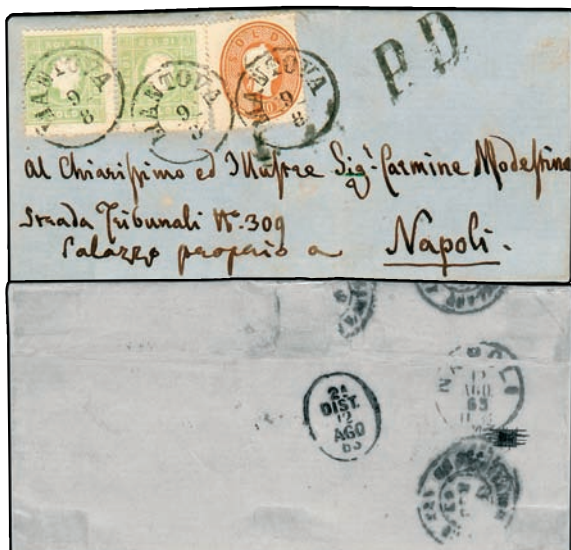 SOLDI
SOLDI
SOLDI
MANTOVA
9
8
MANTOVA
9
8
MANTOVA
9
8
P.D
Al Chiarissimo ed Illustre Sig.r Carmine Modestino
Strada Tribunali N.º 309
Palazzo proprio a Napoli.
2ª
DIST.
12
AGO
63
NAPOLI
12
AGO
63